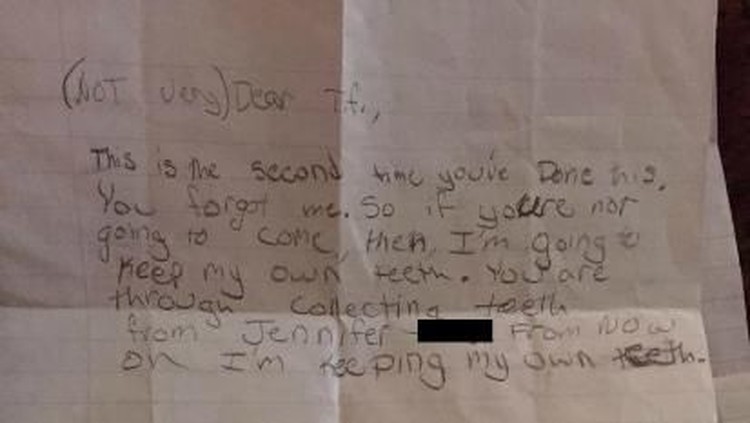 (NOT very) Dear T.f.,
This is the second time you've Done this.
You forgot me. So if you're not
going to come, then, I'm going to
keep my own teeth. You are
through collecting teeth
from Jennifer From Now
on I'm keeping my own teeth.